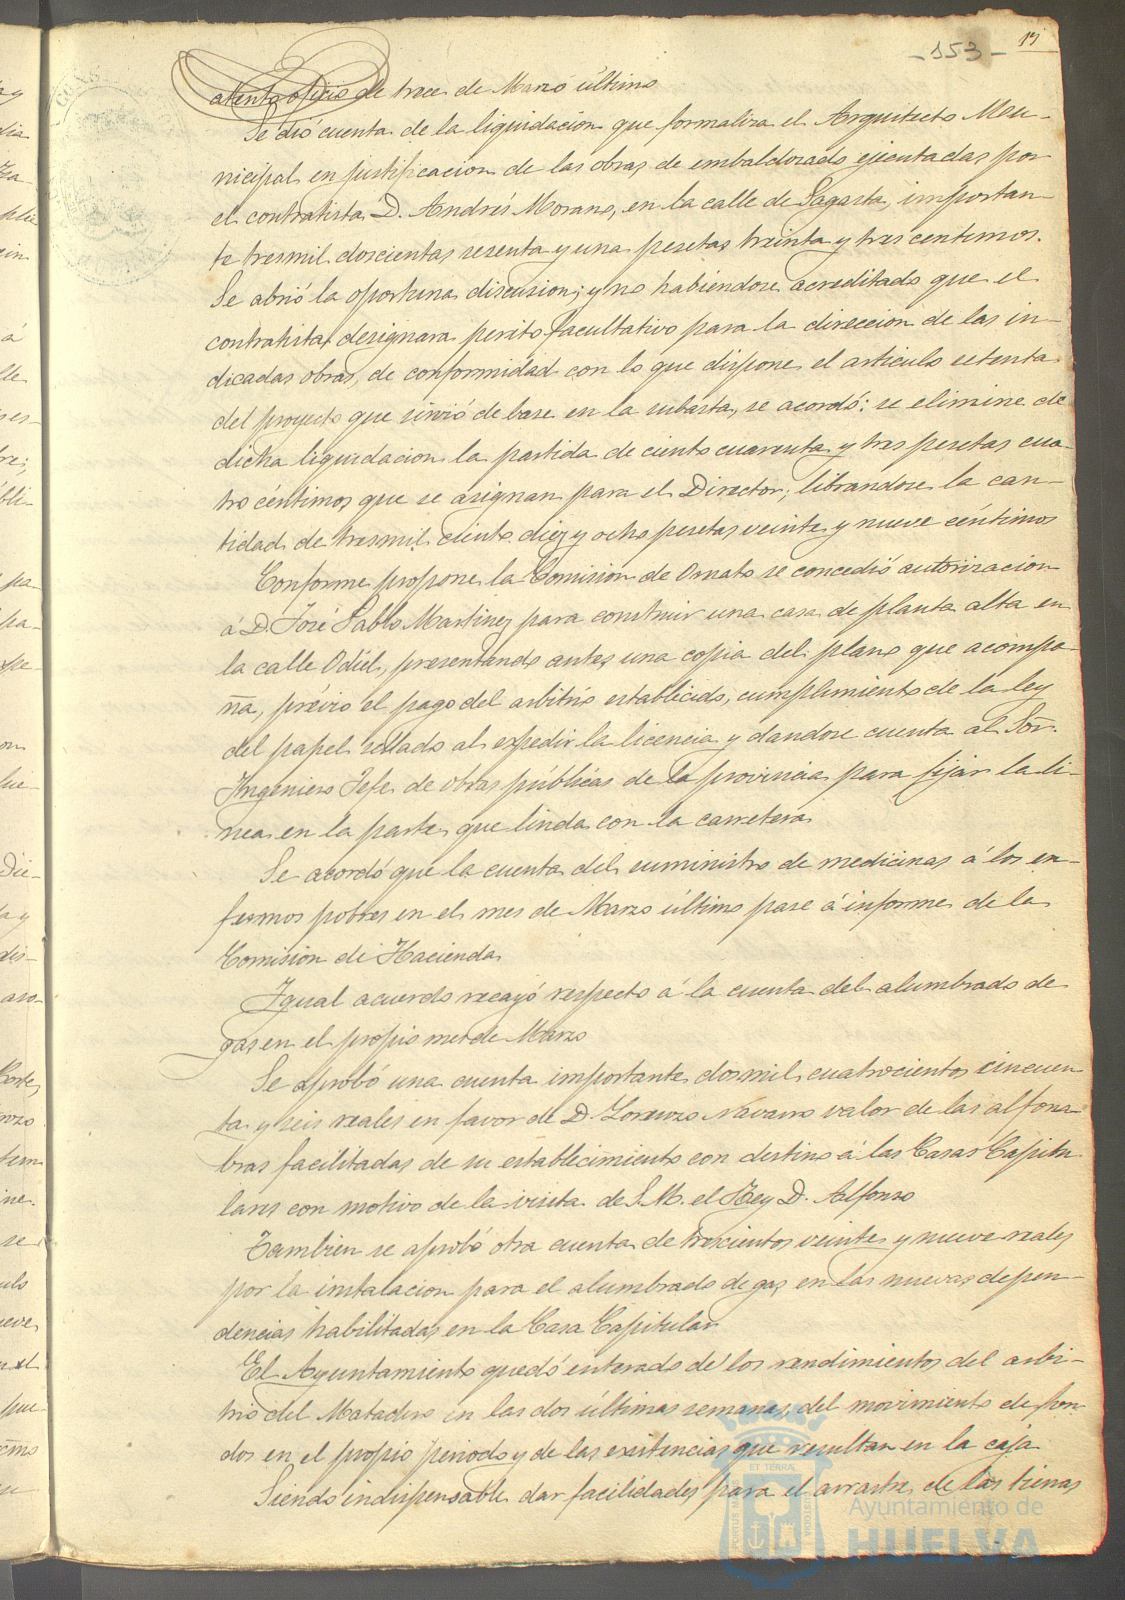 -153-
atento oficio de trece de Marzo último
Se dió cuenta de la liquidacion que formaliza el Arquitecto Mu-
nicipal en justificacion de las obras de embaldosado ejecutadas por
el contratista D. Andrés Morano, en la calle de Sagasta, importan-
te tresmil doscientas sesenta y una pesetas treinta y tres centimos.
Se abrió la oportuna discusion; y no habiendose acreditado que el
contratista designara perito facultativo para la direccion de las in-
dicadas obras, de conformidad con lo que dispone el articulo setenta
del proyecto que sirvió de base en la subasta, se acordó: se elimine de
dicha liquidacion la partida de ciento cuarenta y tres pesetas cua-
tro céntimos que se asignan para el Director; librandose la can-
tidad de tresmil ciento diez y ocho pesetas veinte y nueve céntimos
Conforme propone la Comision de Ornato se concedió autorizacion
á D. José Pablo Martinez para construir una casa de planta alta en
la calle Odiel, presentando antes una copia del plano que acompa-
ña, prévio el pago del arbitrio establecido, cumplimiento de la ley
del papel sellado al expedir la licencia y dandose cuenta al Sor.
Ingeniero Jefe de obras públicas de la provincia para fijar la lí-
nea en la parte que linda con la carretera
Se acordó que la cuenta del suministro de medicinas á los en-
fermos pobres en el mes de Marzo último pase á informe de la
Comision de Hacienda
Igual acuerdo recayó respecto á la cuenta del alumbrado de
gas en el propio mes de Marzo
Se aprobó una cuenta importante dosmil cuatrocientos cincuen
ta y seis reales en favor de D. Lorenzo Navarro valor de las alfom
bras facilitadas de su establecimiento con destino á las Casas Capitu
lares con motivo de la visita de S.M. el Rey D. Alfonso
Tambien se aprobó otra cuenta de trescientos veinte y nueve reales
por la instalacion para el alumbrado de gas en las nuevas depen-
dencias habilitadas en la Casa Capitular
El Ayuntamiento quedó enterado de los rendimientos del arbi-
trio del Matadero en las dos últimas semanas, del movimiento de fon
dos en el propio periodo y de las existencias que resultan en la caja
Siendo indispensable dar facilidades para el arrastre de las tierras
Ayuntamiento de
HUELVA